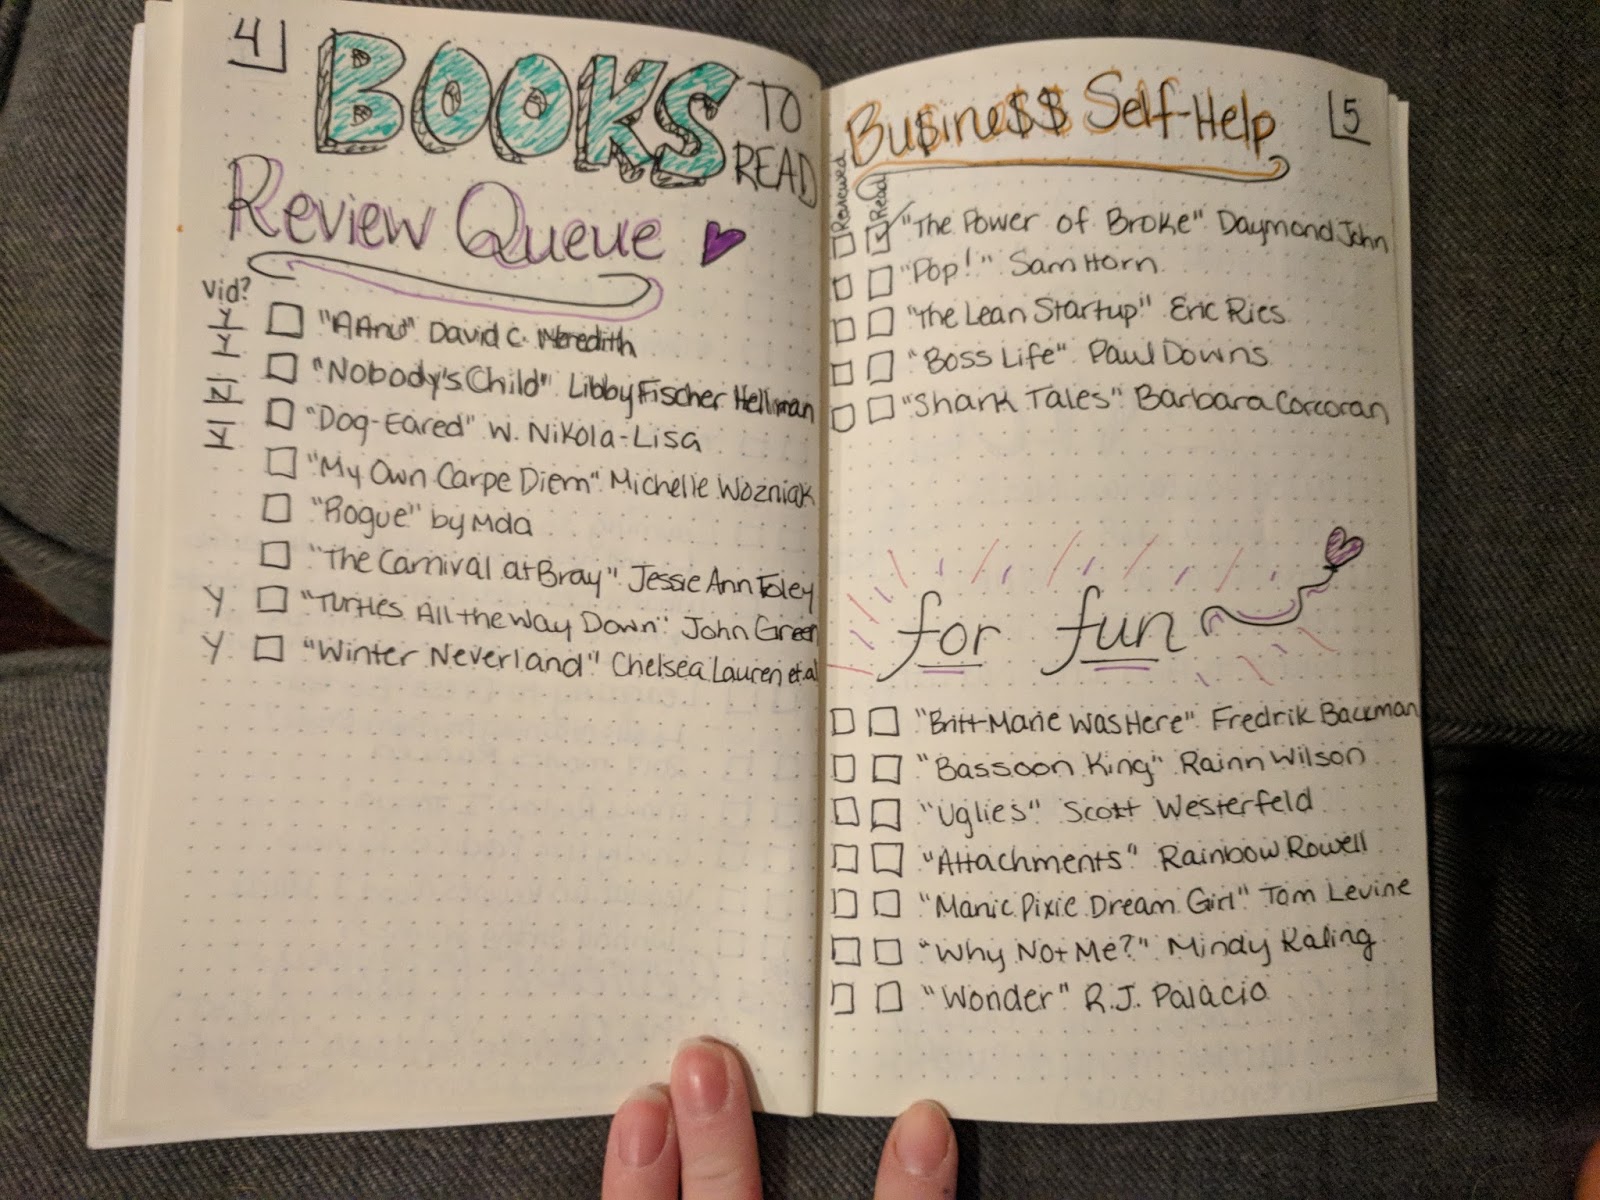 4
BOOKS TO READ
Review Queue
Vid?
Y "AAnu" David C. Meredith
Y "Nobody's Child" Libby Fischer Hellman
N "Dog-Eared" W. Nikola-Lisa
Y "My Own Carpe Diem" Michelle Wozniak
"Rogue" by Mda
"The Carnival at Bray" Jessie Ann Foley
Y "Turtles All the Way Down" John Green
Y "Winter Neverland" Chelsea Lauren et.al
5
Bu$ine$$ Self-Help
Reviewed Read
"The Power of Broke" Daymond John
"Pop!" Sam Horn
"The Lean Startup" Eric Ries
"Boss Life" Paul Downs
"Shark Tales" Barbara Corcoran
for fun
"Britt-Marie Was Here" Fredrik Backman
"Bassoon King" Rainn Wilson
"Uglies" Scott Westerfeld
"Attachments" Rainbow Rowell
"Manic Pixie Dream Girl" Tom Levine
"Why Not Me?" Mindy Kaling
"Wonder" R.J. Palacio